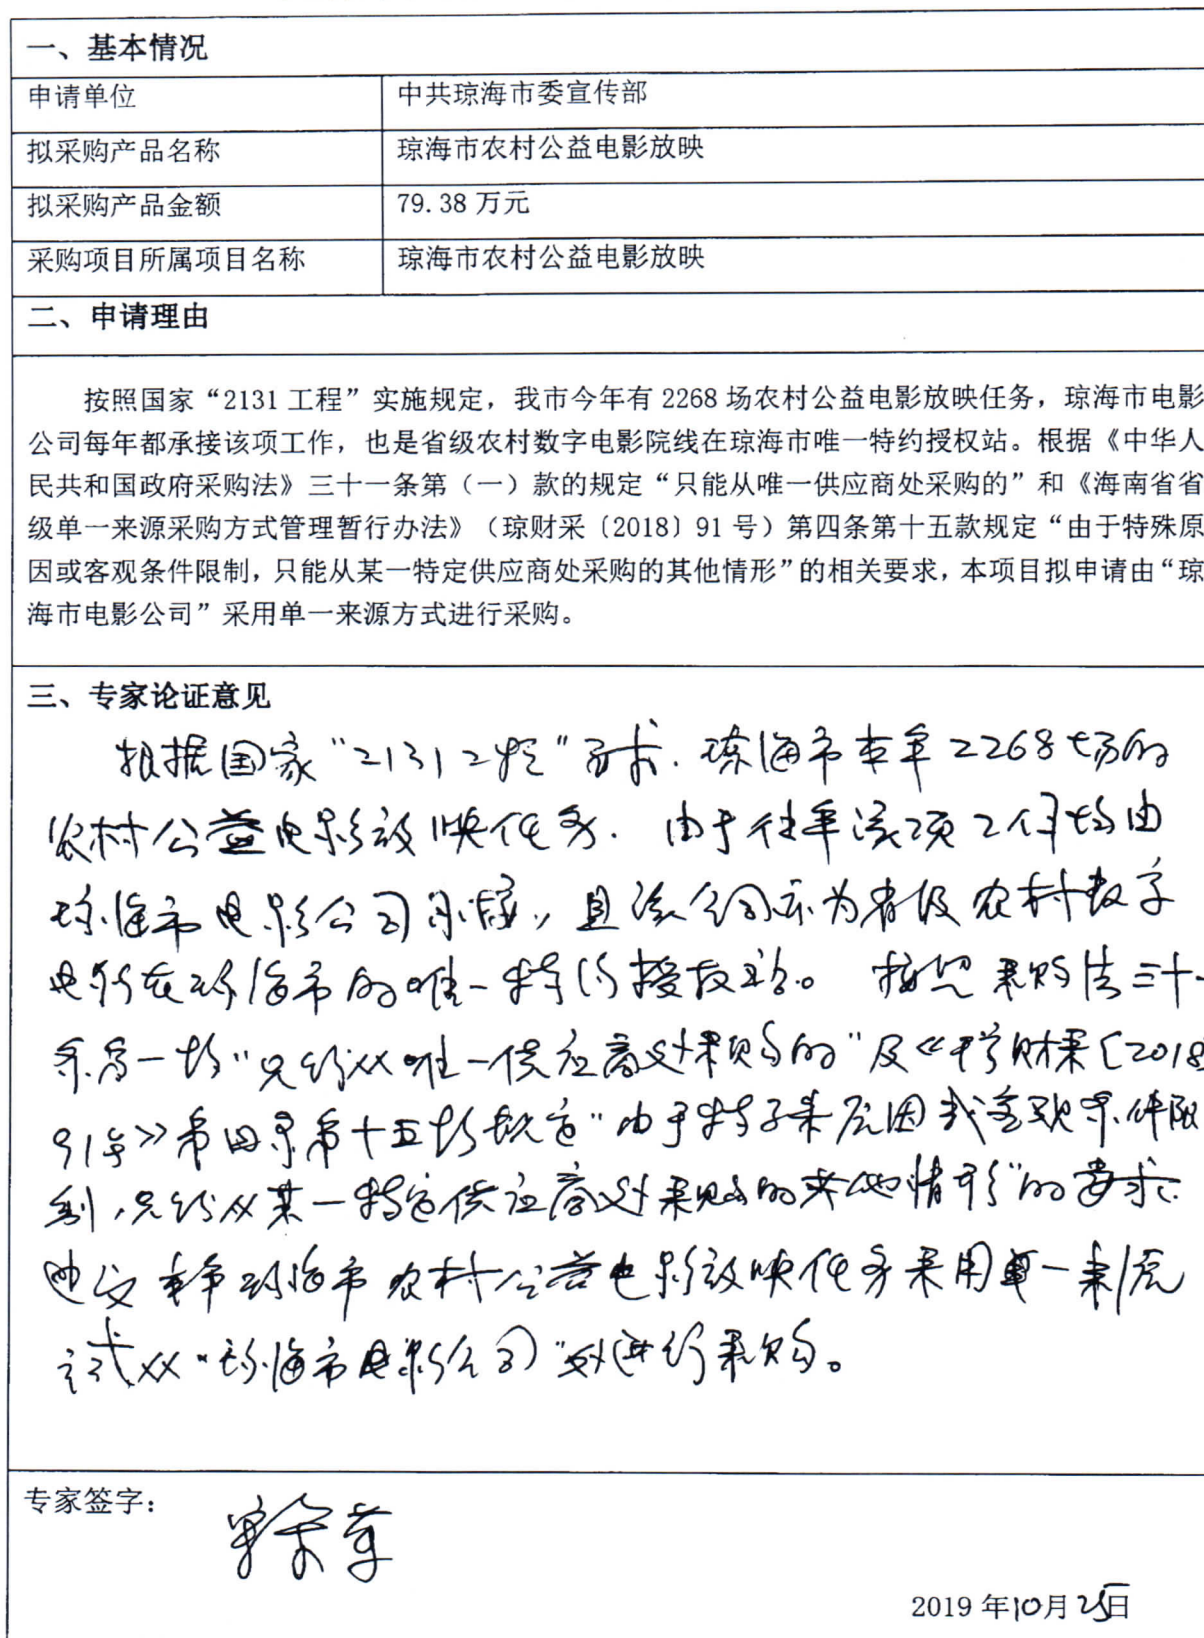 一、基本情况
申请单位 中共琼海市委宣传部
拟采购产品名称 琼海市农村公益电影放映
拟采购产品金额 79.38 万元
采购项目所属项目名称 琼海市农村公益电影放映
二、申请理由
按照国家“2131 工程”实施规定，我市今年有 2268 场农村公益电影放映任务，琼海市电影
公司每年都承接该项工作，也是省级农村数字电影院线在琼海市唯一特约授权站。根据《中华人
民共和国政府采购法》三十一条第（一）款的规定“只能从唯一供应商处采购的”和《海南省省
级单一来源采购方式管理暂行办法》（琼财采〔2018〕91 号）第四条第十五款规定“由于特殊原
因或客观条件限制，只能从某一特定供应商处采购的其他情形”的相关要求，本项目拟申请由“琼
海市电影公司”采用单一来源方式进行采购。
三、专家论证意见
根据国家“2131工程”要求．琼海市本年2268场的
农村公益电影放映任务．由于往年该项工作均由
琼海市电影公司承接，且该公司亦为省级农村数字
电影在琼海市的唯一特约授权站。按照采购法三十一
条第一款“只能从唯一供应商处采购的”及《琼财采〔2018〕
91号》第四条第十五款规定“由于特殊原因或客观条件限
制，只能从某一特定供应商处采购的其他情形”的要求．
建议本年琼海市农村公益电影放映任务采用单一来源
方式从“琼海市电影公司”处进行采购。
专家签字：
2019 年10月25日